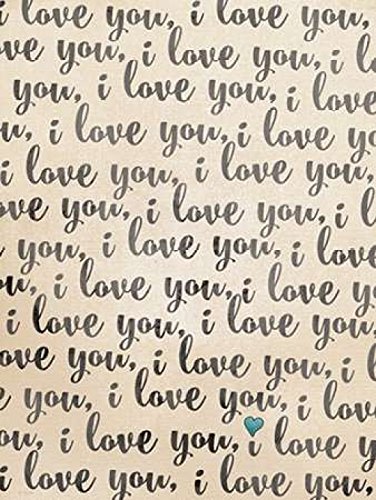 i love you, i love you,
ve you, i love you, i lo
you, i love you, i love
u, i love you, i love yo
i love you, i love you,
ove you, i love you, i l
you, i love you, i lov
u, i love you, i love y
i love you, i love you,
love you, i love you, i
ve you, i love you, i lo
you, i love you, i love
u, i love you, i love you,